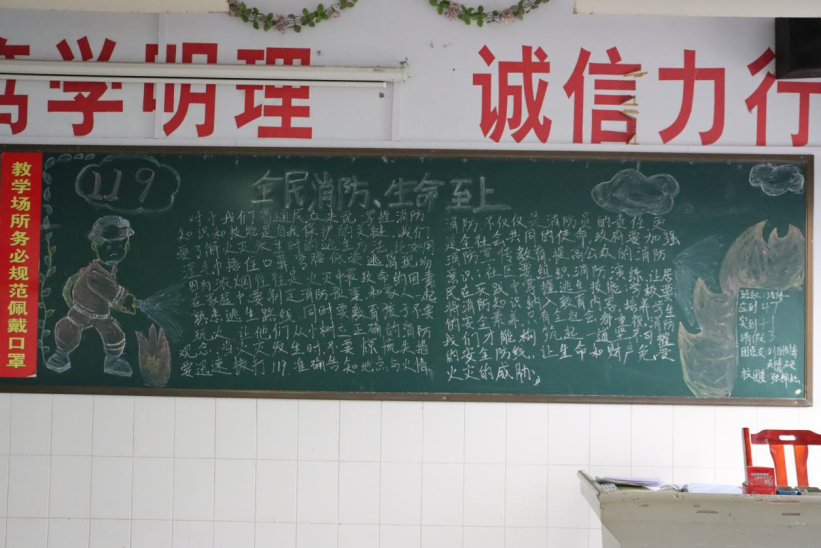 高学明理
诚信力行
教学场所务必规范佩戴口罩
119
全民消防、生命至上
对于我们普通民众来说,掌握消防
知识和技能是自我保护的关键。我们
要了解火灾发生时的逃生方法,比如用
湿毛巾捂住口鼻,弯腰低姿逃离现场,
因为浓烟往往是火灾中最致命的因素
在家庭中要制定消防预案,和家人一起
熟悉逃生路线。同时,
玩火,让他们从小树立正确的消防
观念。当火灾发生时不要惊慌失措
要迅速拨打119,准确告知地点与火情
消防不仅仅是消防员的责任,更
是全社会共同的使命。政府要加强
消防宣传教育,提高公众的消防
意识;社区要组织消防演练,让居
民在实践中掌握逃生技能;学校要
将消防知识纳入教育内容,培养学生
的安全素养。只有全社会都重视消防
我们才能构筑起一道坚不可摧
的安全防线,让生命和财产免受
火灾的威胁。
应到 47
实到
请假